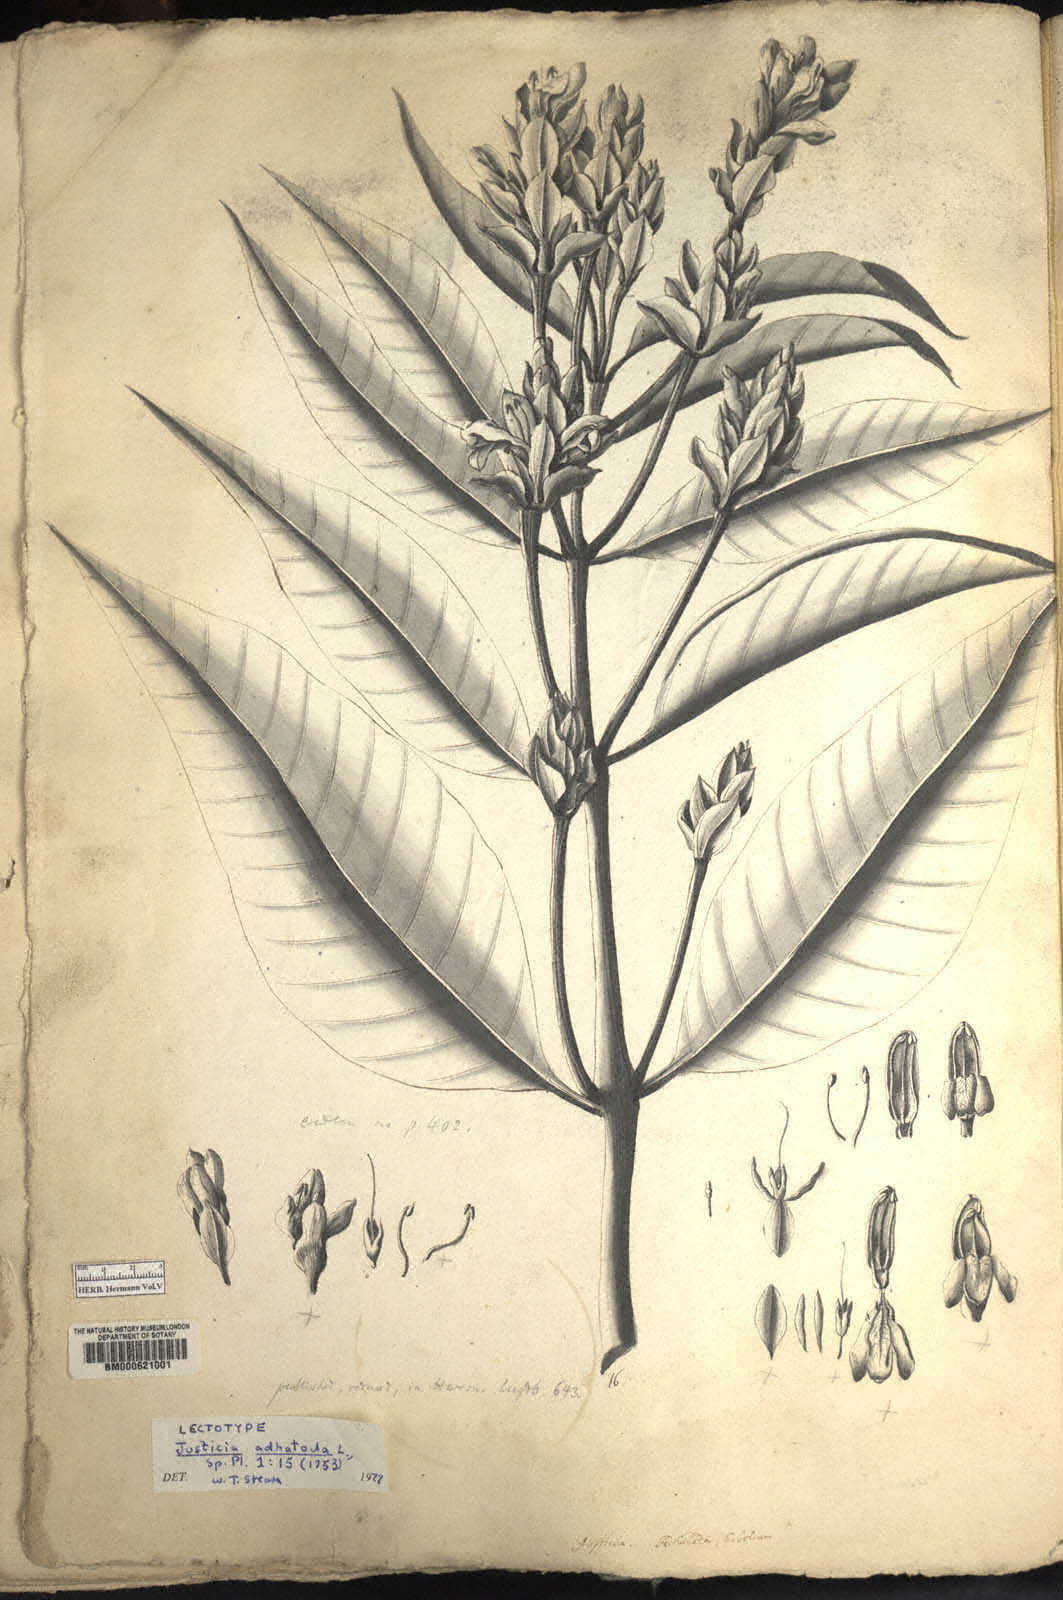 p. 402.
mm
HERB. Hermann Vol.V
THE NATURAL HISTORY MUSEUM, LONDON
DEPARTMENT OF BOTANY
BM000621001
published, reduced, in Herm. Lugdb. 643.
16
LECTOTYPE
Justicia adhatoda L.,
Sp. Pl. 1:15 (1753)
DET. W. T. Stearn
Justicia. Adhatoda